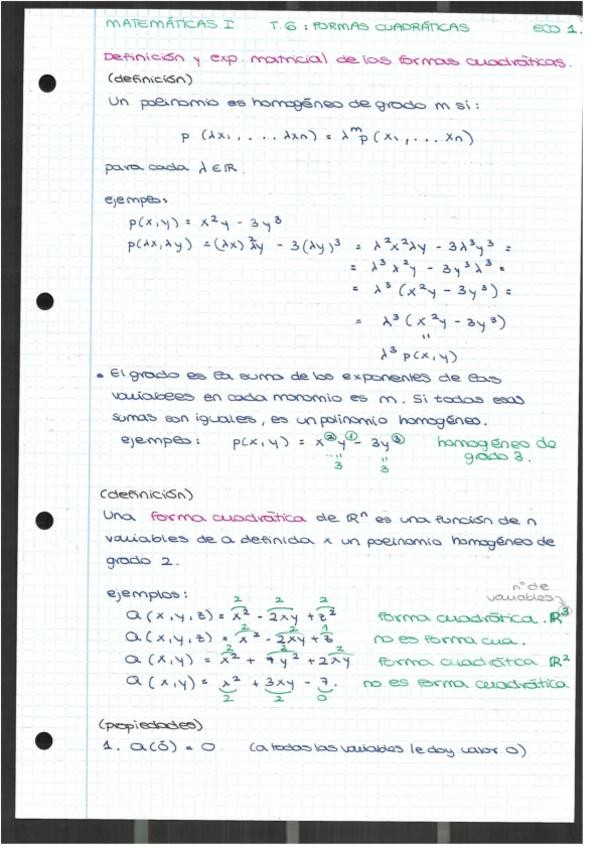 MATEMÁTICAS I T.6: FORMAS CUADRÁTICAS ECO 1.
Definición y exp. matricial de las formas cuadráticas.
(definición)
Un polinomio es homogéneo de grado m si:
p (λx₁, . . . . λxn) = λᵐp (x₁, . . . xn)
para cada λ ∈ ℝ.
ejemplo:
p(x,y) = x²y - 3y³
p(λx,λy) = (λx)²λy - 3(λy)³ = λ²x²λy - 3λ³y³ =
= λ³x²y - 3y³λ³ =
= λ³(x²y - 3y³) =
= λ³(x²y - 3y³)
"
λ³ p(x,y)
• El grado es la suma de los exponentes de las
variables en cada monomio es m. Si todas esas
sumas son iguales, es un polinomio homogéneo.
ejemplo: p(x,y) = x²y¹ - 3y³ homogéneo de
grado 3.
3 3
(definición)
Una forma cuadrática de ℝⁿ es una función de n
variables de a definida x un polinomio homogéneo de
grado 2.
nº de
variables
ejemplos:
2 2 2
a(x,y,z) = x² - 2xy + z² forma cuadrática. ℝ³
2 2 1
a(x,y,z) = x² - 2xy + z no es forma cua.
2 2 2
a(x,y) = x² + 7y² + 2xy forma cuadrática ℝ²
a(x,y) = x² + 3xy - 7. no es forma cuadrática
2 2 0
(propiedades)
1. a(ō) = 0. (a todas las variables le doy valor 0)